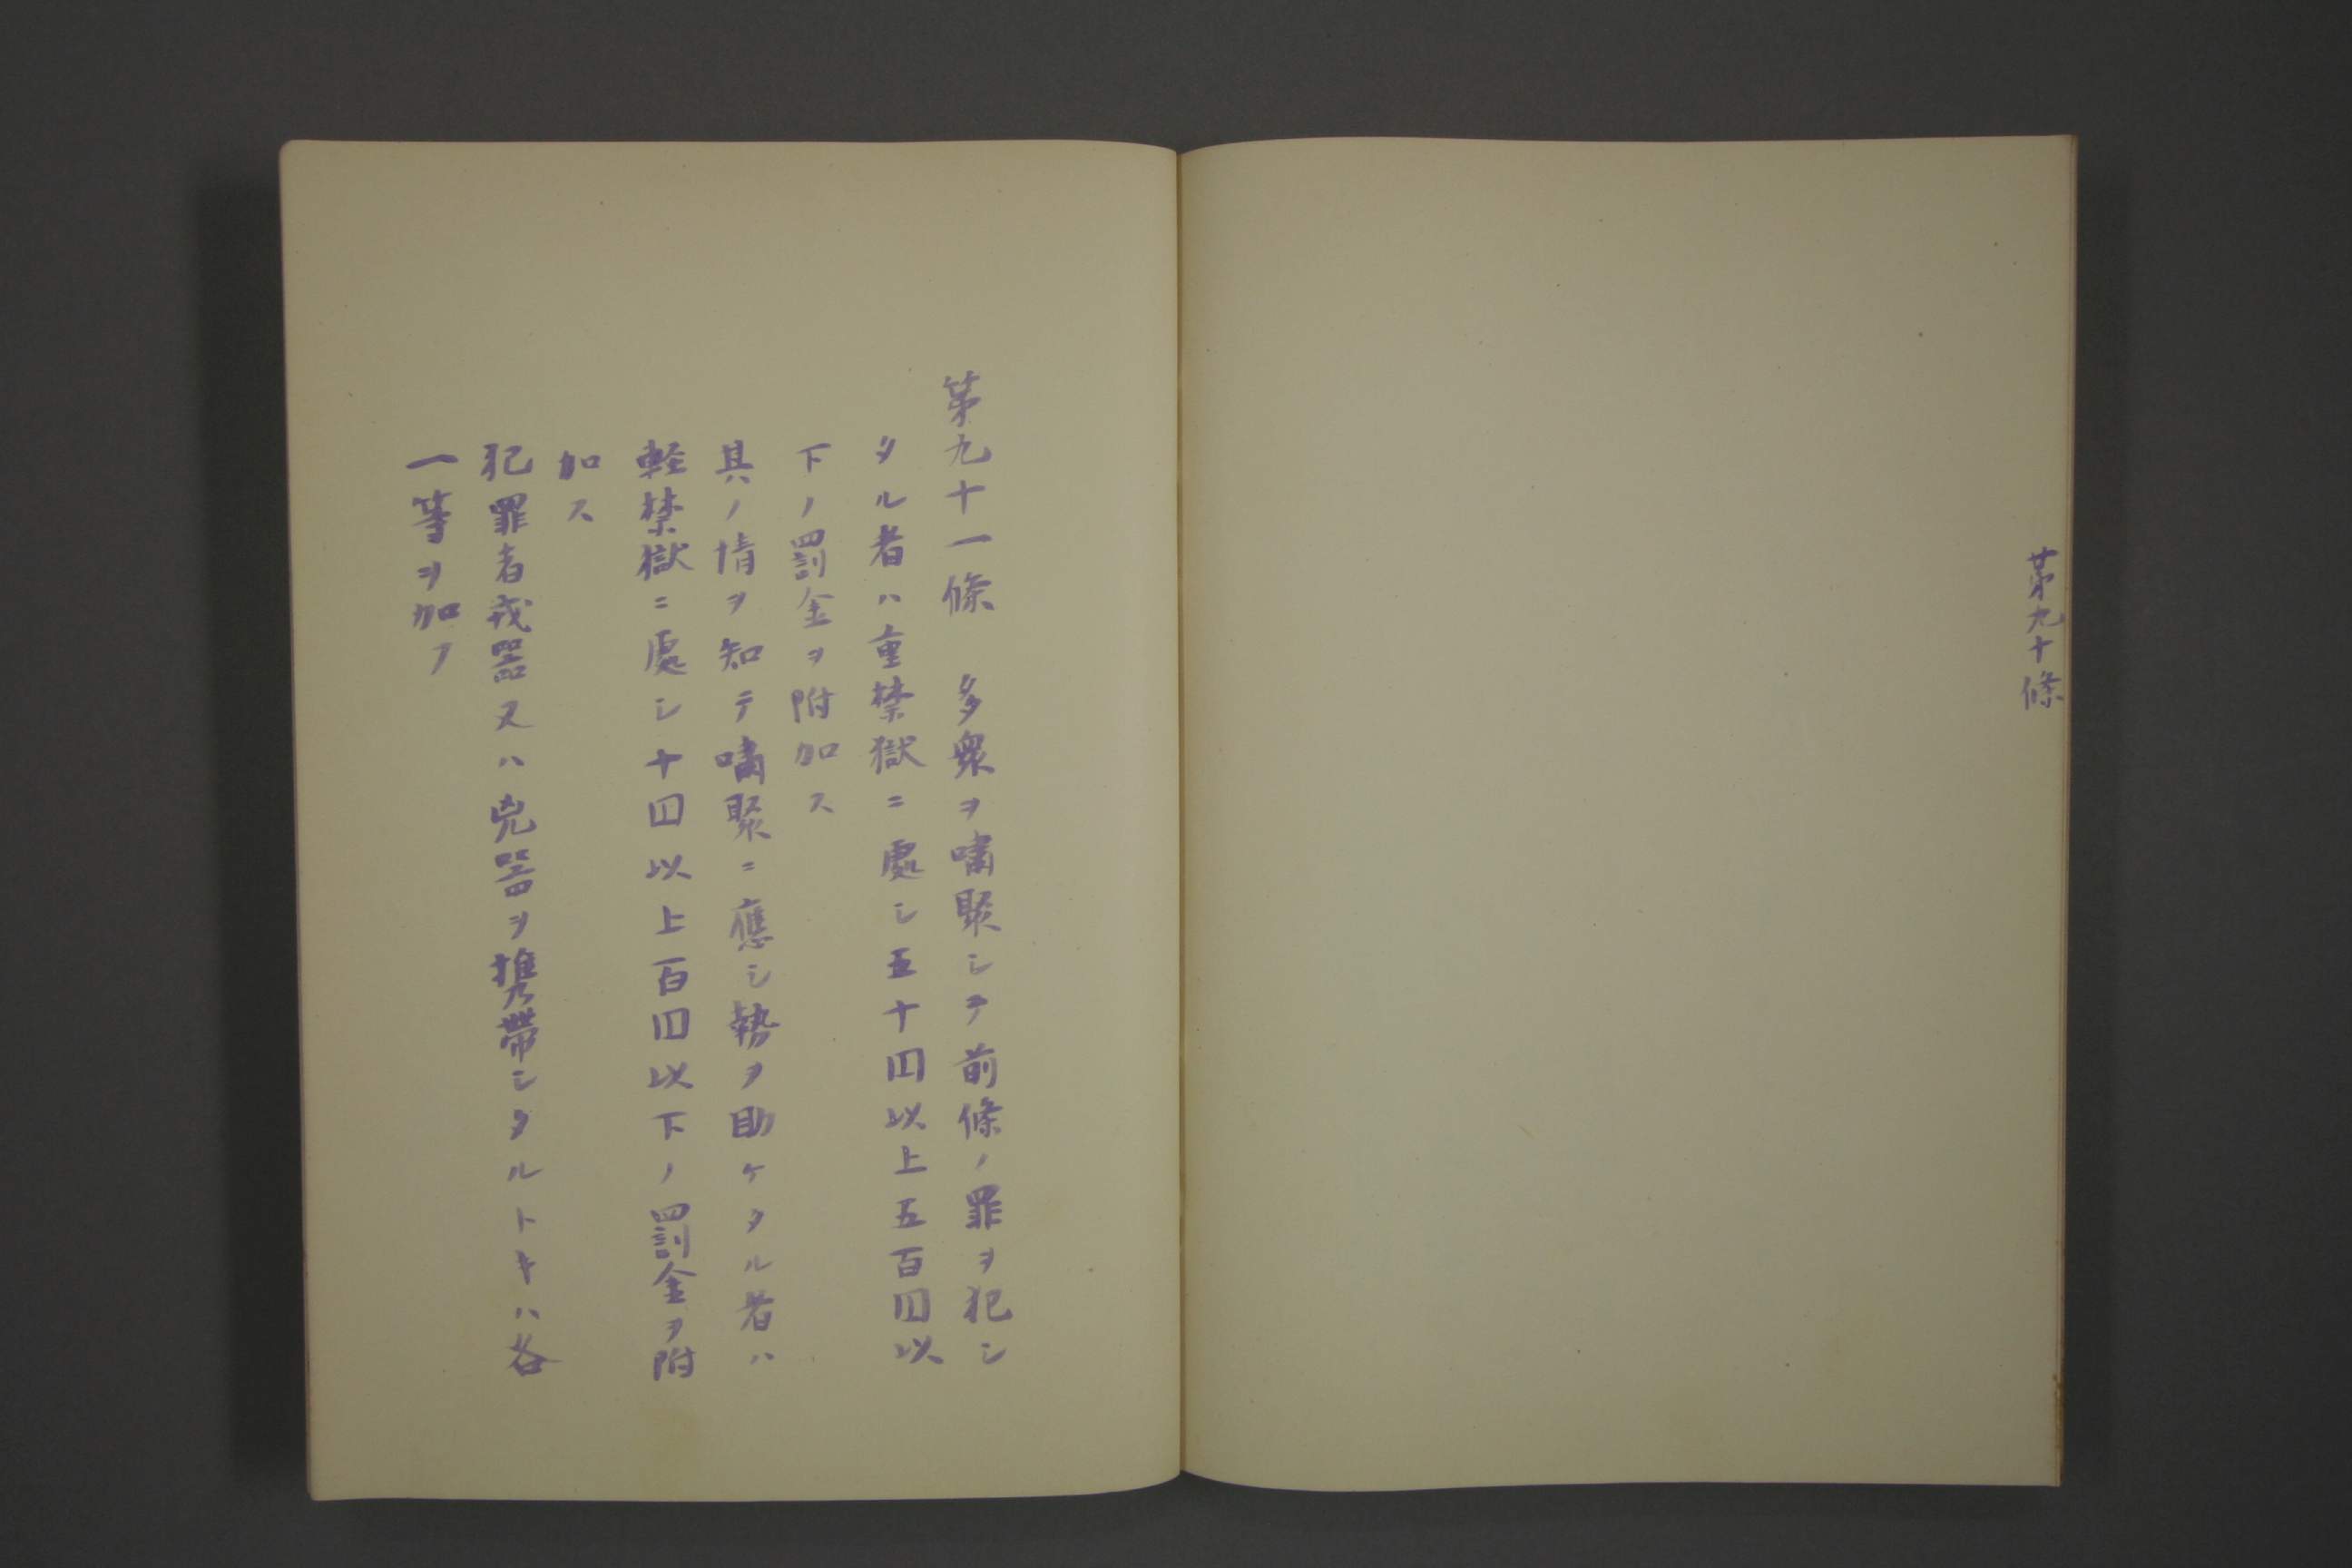 第九十條
第九十一條　多衆ヲ嘯聚シテ前條ノ罪ヲ犯シ
タル者ハ重禁獄ニ處シ五十囗以上五百囗以
下ノ罰金ヲ附加ス
其ノ情ヲ知テ嘯聚ニ應シ勢ヲ助ケタル者ハ
軽禁獄ニ處シ十囗以上百囗以下ノ罰金ヲ附
加ス
犯罪者戎器又ハ兇器ヲ携帶シタルトキハ各
一等ヲ加フ